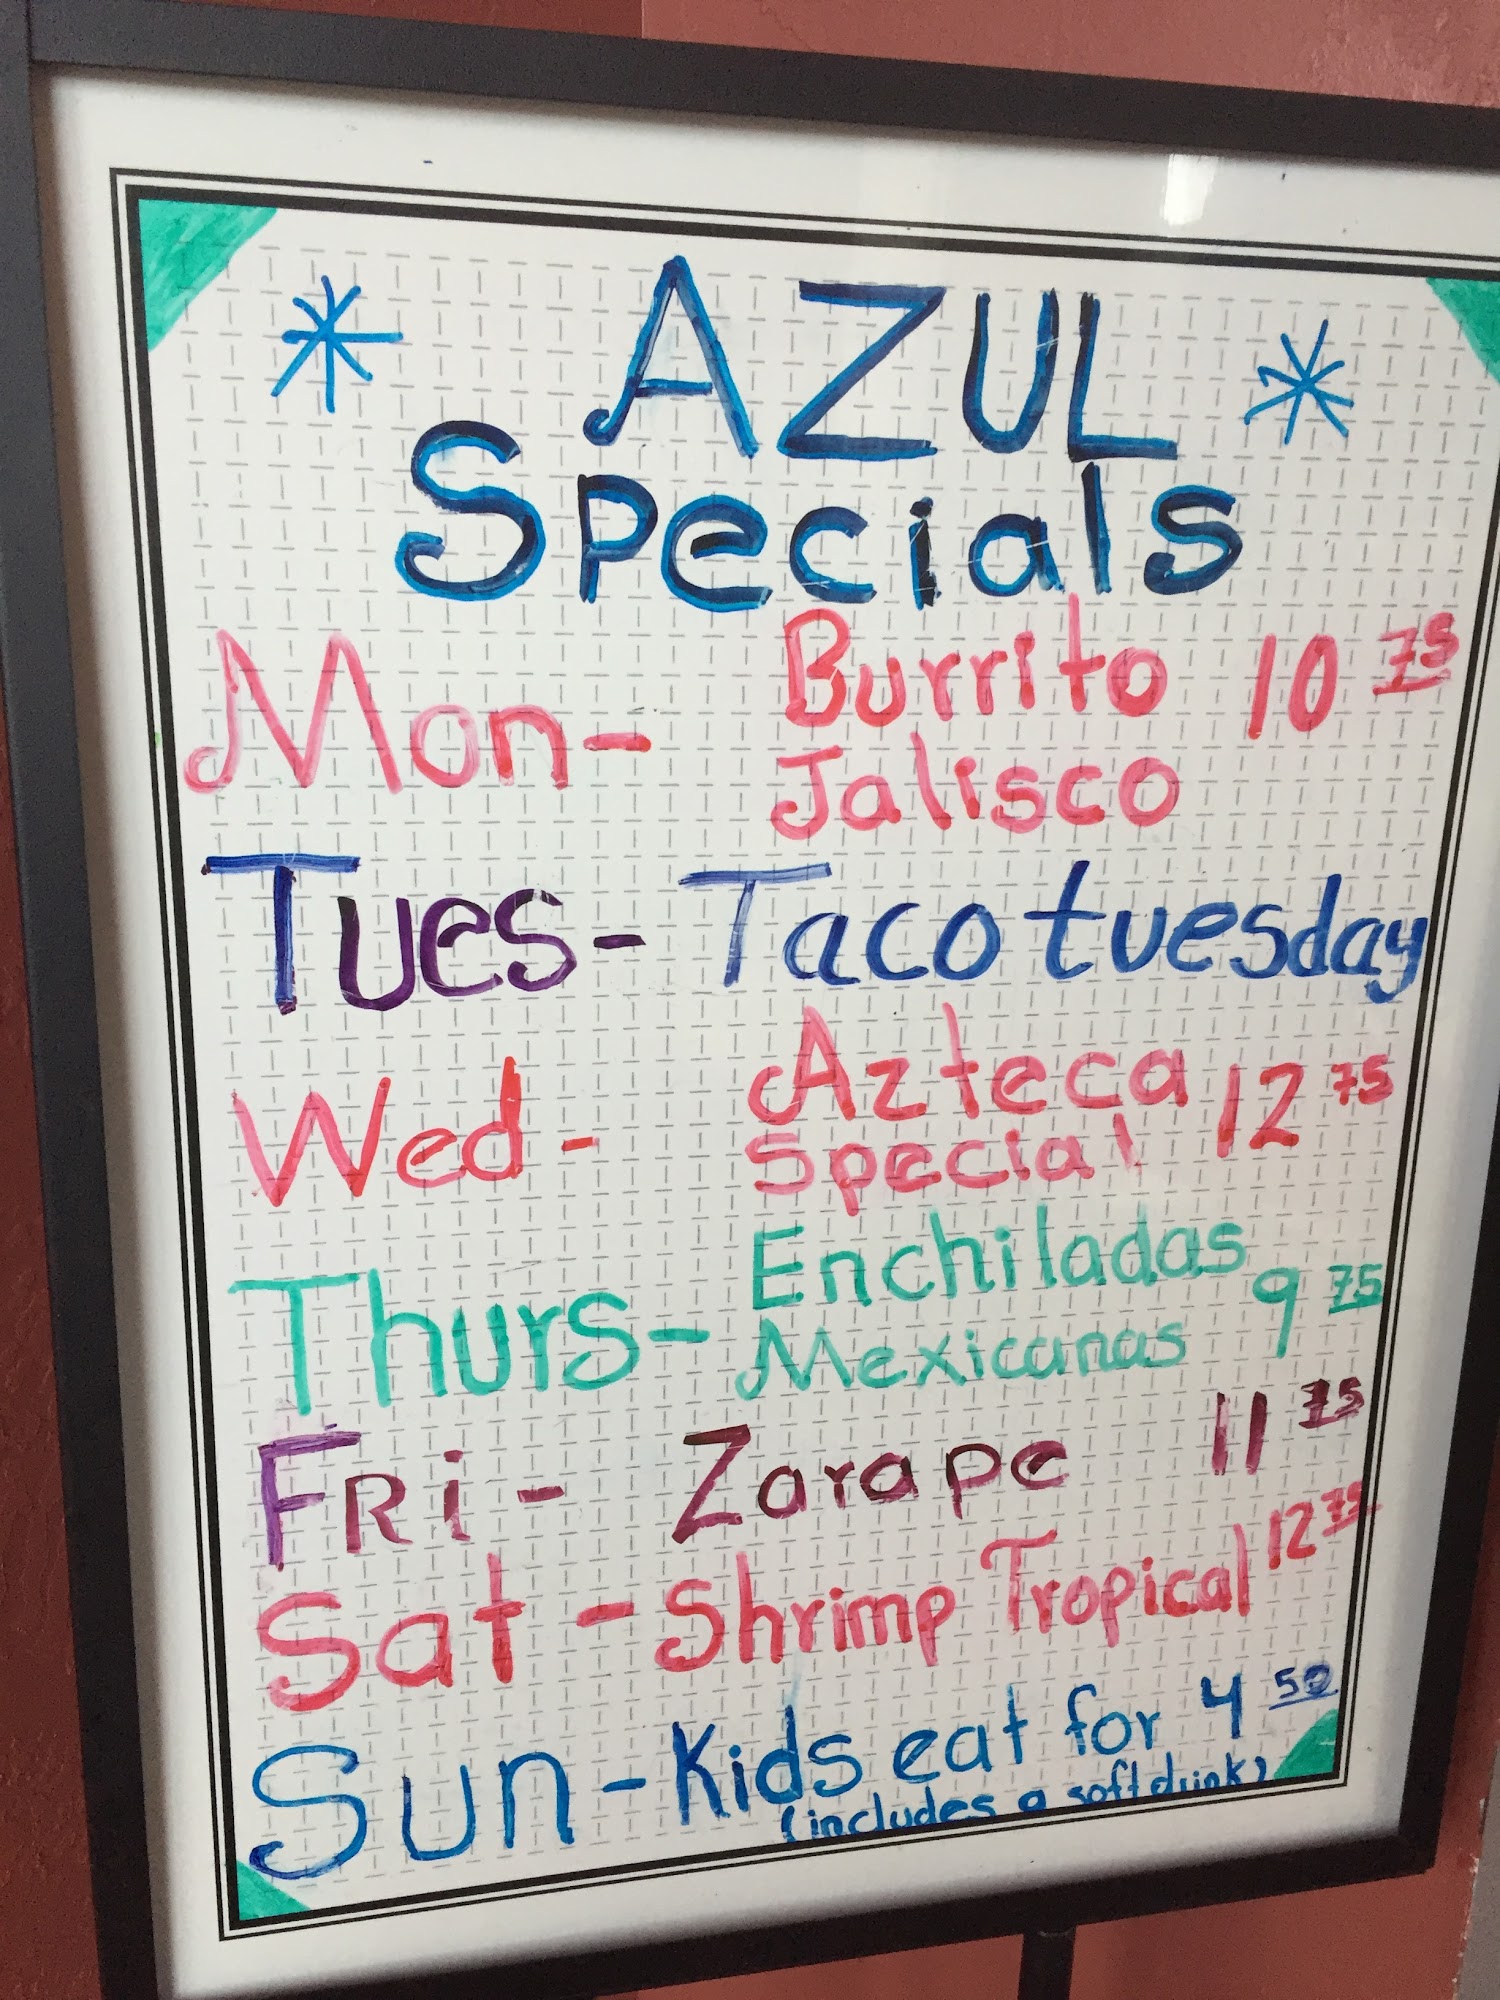 AZUL
Specials
Mon- Burrito 10 75
Jalisco
Tues- Taco tuesday
Wed- Azteca 12 75
Special
Thurs- Enchiladas 9 75
Mexicanas
Fri- Zarape 11 75
Sat- Shrimp Tropical 12 75
Sun- Kids eat for 4 50
(includes a soft drink)